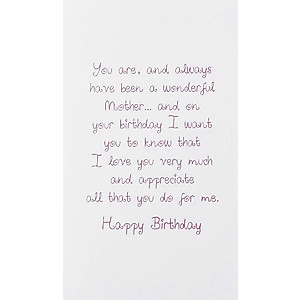 You are, and always
have been a wonderful
Mother... and on
your birthday I want
you to know that
I love you very much
and appreciate
all that you do for me.
Happy Birthday